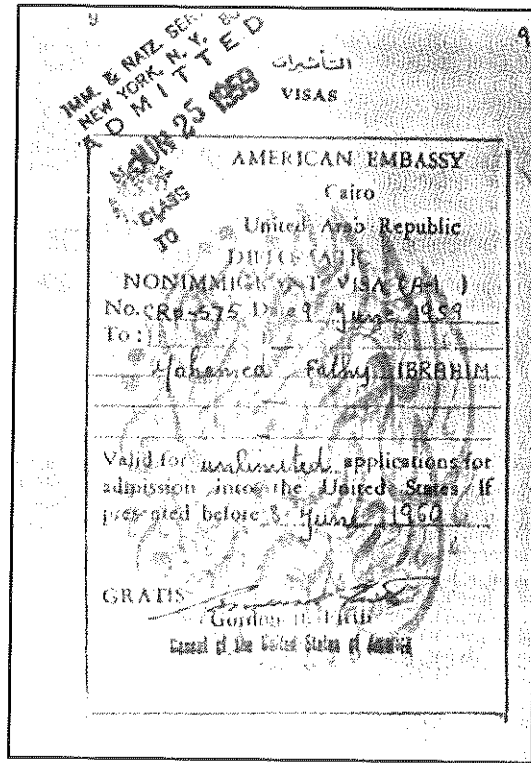 9
IMM. & NATZ. SER.
NEW YORK, N. Y. 83
ADMITTED
JUN 25 1959
CLASS
TO
التأشيرات
VISAS
AMERICAN EMBASSY
Cairo
United Arab Republic
DIPLOMATIC
NONIMMIGRANT VISA (A-1 )
No. 9 June 1959
To:
Mohamed Fathy IBRAHIM
Valid for unlimited applications for
admission into the United States If
presented before 8 June 1960
GRATIS
Gordon
Consul of the United States of America